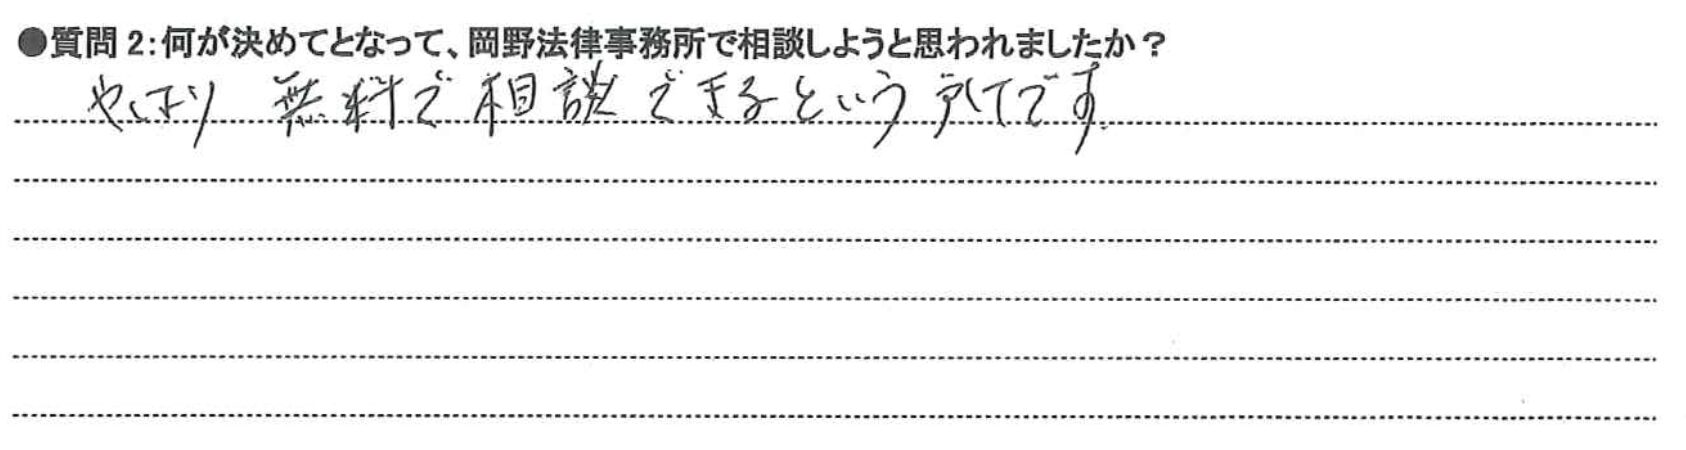 ●質問2:何が決めてとなって、岡野法律事務所で相談しようと思われましたか?
やはり 無料で相談できるという所です。